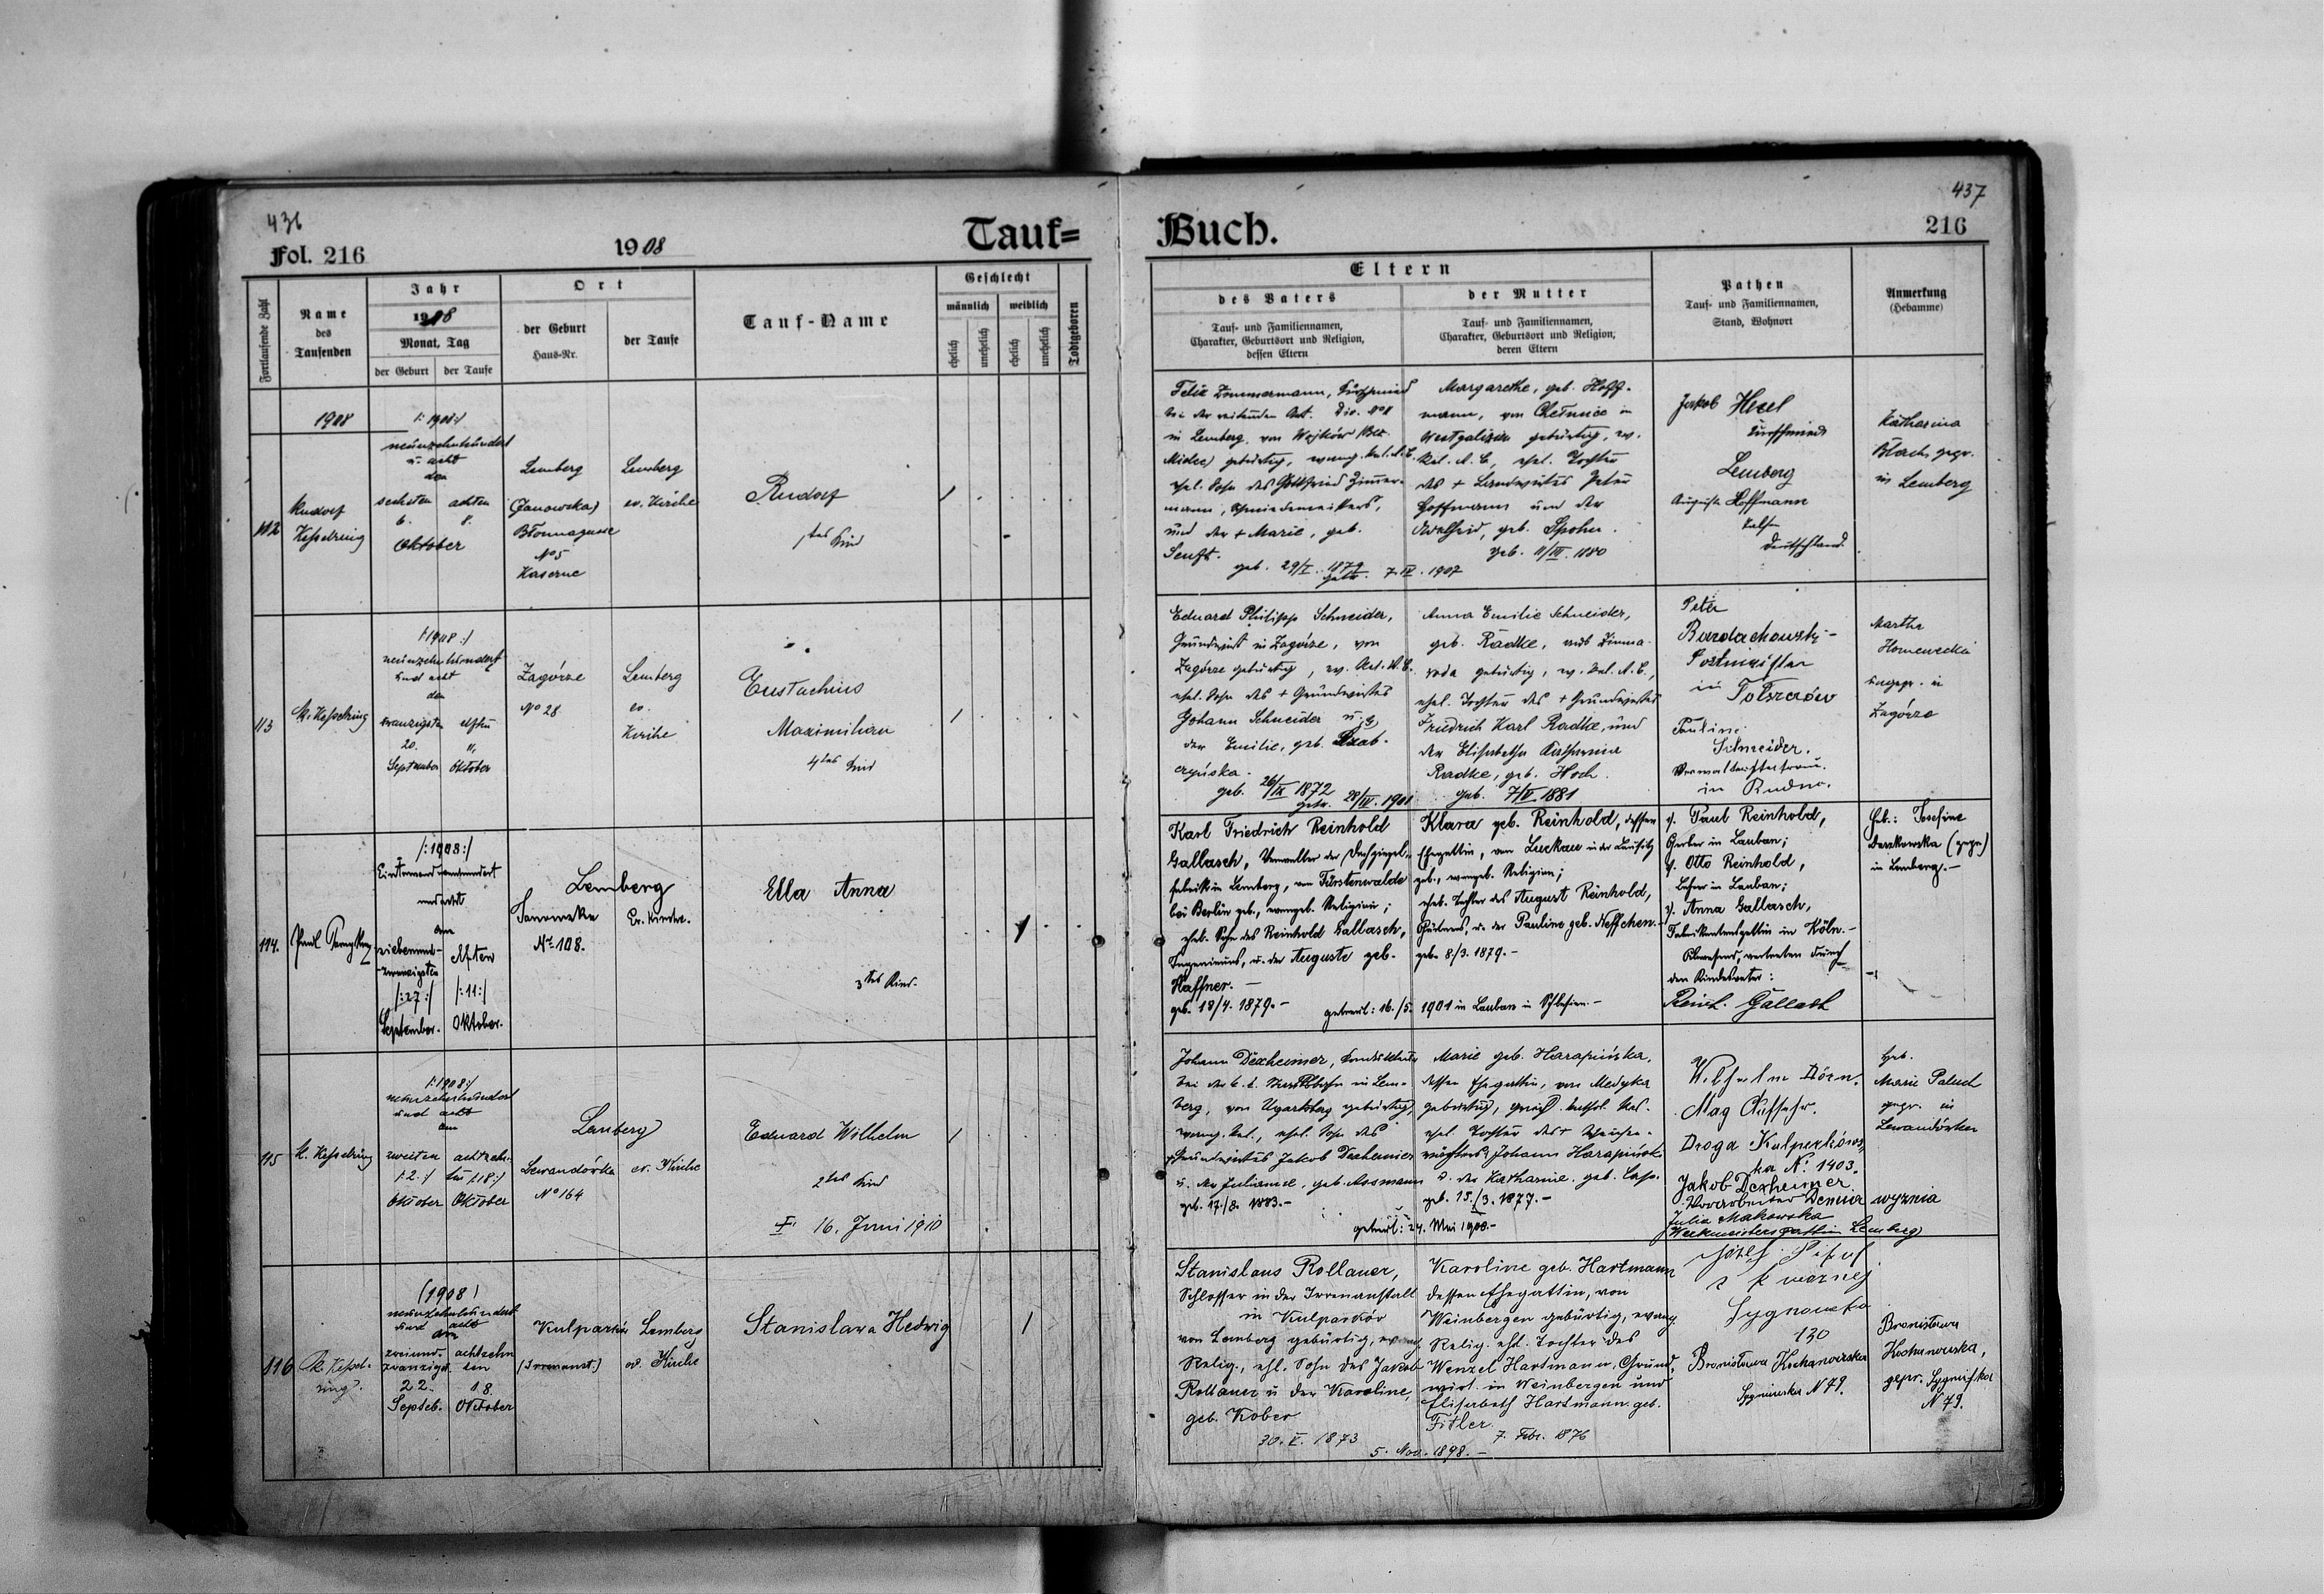 436
Fol. 216
1908
Tauf=
Fortlaufende Zahl
Name
des
Taufenden
Jahr
1908
Monat, Tag
der Geburt
der Taufe
Ort
der Geburt
Haus-Nr.
der Taufe
Tauf-Name
Geschlecht
männlich
weiblich
ehelich
unehelich
ehelich
unehelich
Todtgeboren
1908
112
Rudolf
Kesselring
/:1908:/
neunzehnhundert
u. acht
den
sechsten
6.
achten
8.
Oktober
Lemberg
(Janowska)
Błonnagasse
No 5
Kaserne
Lemberg
ev. Kirche
Rudolf
1tes Kind
113
R. Kesselring
/:1908:/
neunzehnhundert
und acht
den
zwanzigsten
20.
September
elften
11.
Oktober
Zagórze
No 28
Lemberg
ev.
Kirche
Eustachius
Maximilian
4tes Kind
114.
Paul
/:1908:/
Eintausendneunhundert
und acht
am
siebenund-
-zwanzigsten
/:27:/
September.
elften
/:11:/
Oktober.
Lemberg
Janowska
No 108.
Ev. Kirche.
Ella Anna
3tes Kind.
115
R. Kesselring
/:1908:/
neunzehnhundert
und acht
am
zweiten
/:2:/
Oktober
achtzehn-
ten /18:/
Oktober
Lemberg
Lewandówka
No 164
ev. Kirche
Eduard Wilhelm
2tes Kind
16. Juni 1910
116
R. Kessel-
ring.
(1908)
neunzehnhundert
und acht
am
zweiund-
zwanzigst.
22.
Septeb.
achtzehn
ten
18.
Oktober
Kulparków
(Irrenanst.)
Lemberg
ev. Kirche
Stanislawa Hedwig
437
Buch.
216
Eltern
des Vaters
Tauf- und Familiennamen,
Charakter, Geburtsort und Religion,
dessen Eltern
der Mutter
Tauf- und Familiennamen,
Charakter, Geburtsort und Religion,
deren Eltern
Pathen
Tauf- und Familiennamen,
Stand, Wohnort
Anmerkung
(Hebamme)
Felix Zimmermann, Kurschmied
bei der reitenden Art. Div. No
in Lemberg, von Wojków (Bez.
Mielec) gebürtig, evang. Rel. A.C.
ehel. Sohn des Gottfried Zimmer-
mann, Schmiedemeisters,
und der + Marie, geb.
Senft.
geb. 29/I. 1879
Margarethe, geb. Hoff-
mann, von in
Westgalizien gebürtig, ev.
Rel. A.C., ehel. Tochter
des + Landwirtes Peter
Hoffmann und der
Adelheid, geb. Spohn.
geb. 11/III. 1880
getr. 7. IV. 1907
Jakob Hesel
Kurschmied
Lemberg
Auguste Hoffmann
Deutschland.
Katharina
Blach, gepr.
in Lemberg
Eduard Philipp Schneider,
Grundwirt in Zagórze, von
Zagórze gebürtig, ev. Rel. A.C.
ehel. Sohn des + Grundwirtes
Johann Schneider u.
der Emilie, geb.
geb. 26/IX 1872
Anna Emilie Schneider,
geb. Radke, aus Zimna-
woda gebürtig, ev. Rel. A.C.,
ehel. Tochter des + Grundwirtes
Friedrich Karl Radke, und
der Elisabetha Katharina
Radke, geb. Hoch.
geb. 7/IV 1881
getr. 28/IV. 1901
Peter
Bardachowski-
Postmeister
in Tołszczów
Pauline
Schneider.
in Rudno.
Martha
gepr. in
Zagórze
Karl Friedrich Reinhold
Gallasch, Verwalter der Dachziegel-
fabrik in Lemberg, von Fürstenwalde
bei Berlin geb., evangel. Religion;
ehel. Sohn des Reinhold Gallasch,
Ingenieurs, u. der Auguste geb.
Haffner.-
geb. 18/4. 1879.-
Klara geb. Reinhold, dessen
Ehegattin, von Luckau in der Lausitz
geb., evangel. Religion;
ehel. Tochter des August Reinhold,
Gärtners, u. der Pauline geb. Neffchen.-
geb. 8./3. 1879.-
getraut: 16./5. 1901 in Lauban in Schlesien.-
Paul Reinhold,
Gerber in Lauban;
Otto Reinhold,
Lehrer in Lauban;
Anna Gallasch,
Fabrikantensgattin in Köln.-
Abwesend, vertreten durch
den Kindesvater:
Reinh. Gallasch
Heb.: Josefine
Daszkowska (gepr.)
in Lemberg.-
Johann Dexheimer,
bei der k.k. Staatsbahn in Lem-
berg, von Ugartsberg gebürtig,
evang. Rel., ehel. Sohn des
Grundwirtes Jakob Dexheimer
u. der Julianne, geb. Assmann
geb. 17./8. 1883.-
Marie geb. Harapińska,
dessen Ehegattin, von Medyka
gebürtig, griech. kathol. Rel.
ehel. Tochter des +
Johann Harapińsk-
u. der Katharine, geb.
geb. 15./3. 1877.-
getraut: 24. Mai 1908.-
Wilhelm Dörn.
Mag
Droga Kulparków-
ska No 1403.
Jakob Dexheimer
Vorarbeiter Demnia wyznia
Julia Makowska
Werkmeistersgattin Lemberg
Heb.
Marie Palud
gepr. in
Lewandówka
Stanislaus Rollauer,
Schlosser in der Irrenanstalt
in Kulparków
von Lemberg gebürtig, evang.
Relig., ehl. Sohn des Jakob
Rollauer u. der Karoline,
geb. Kober
30. V. 1873
Karoline geb. Hartmann
dessen Ehegattin, von
Weinbergen gebürtig, evang.
Relig. ehl. Tochter des
Wenzel Hartmann, Grund-
wirt. in Weinbergen und
Elisabeth Hartmann geb.
Fitler.
7. Febr. 1876
5. Nov. 1898.-
Józef
Sygnowka
130
Bronisława Kochanowska
Sygniówka N 79.
Bronisława
Kochanowska,
gepr. Sygniówka
N 79.